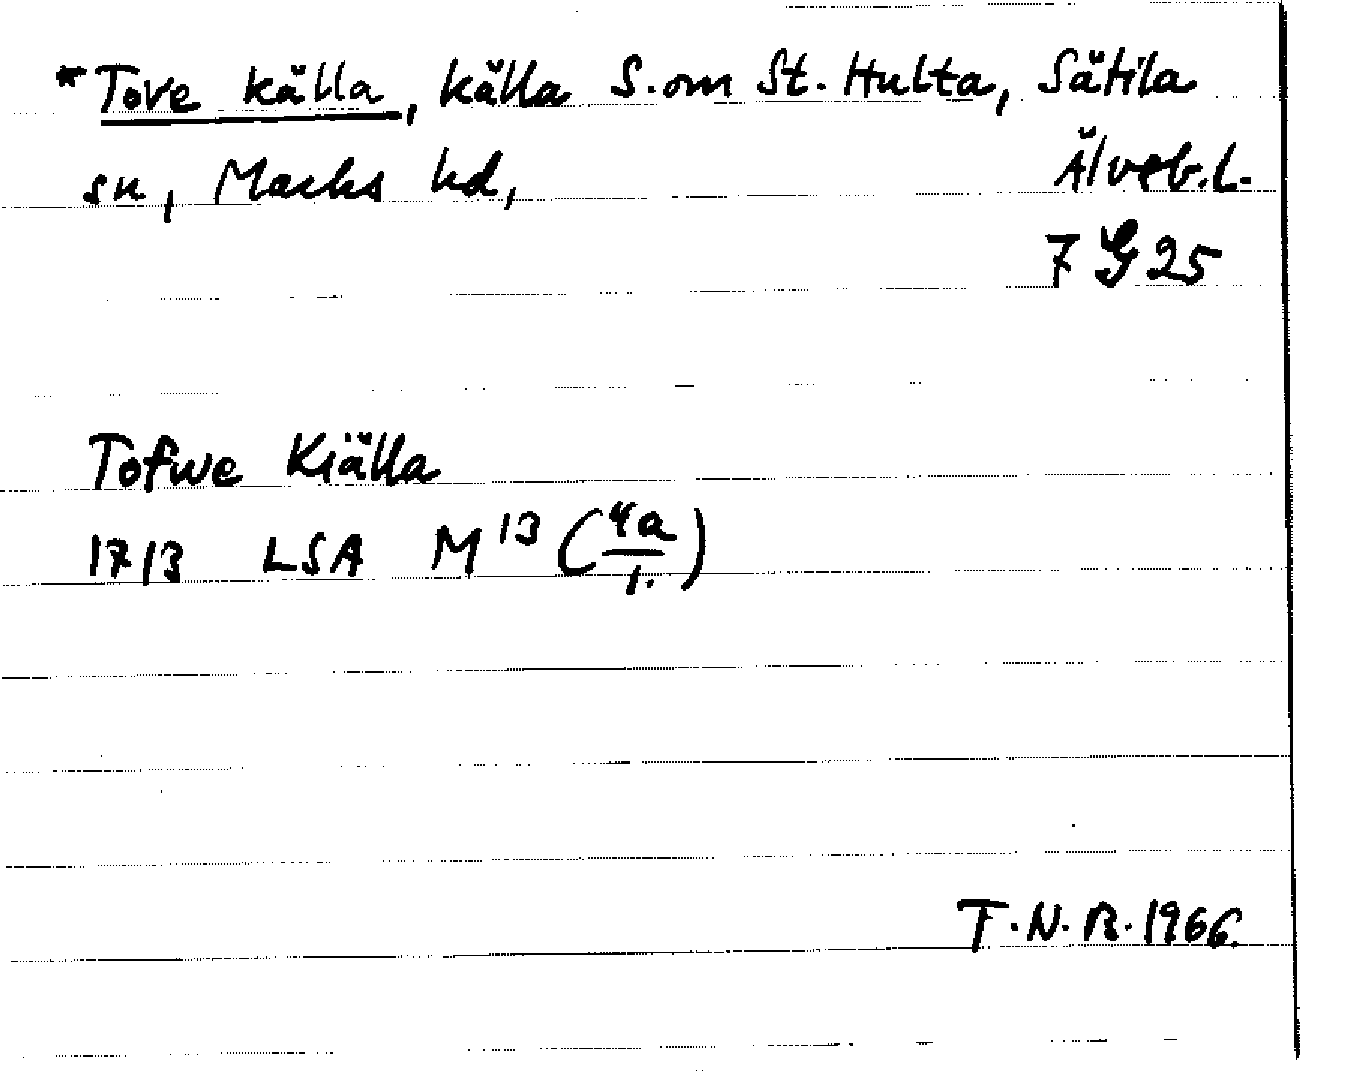 *Tove källa, källa S.om St. Hulta, Sätila
sn, Marks hd, Älvsb.l.
7 G 25
Tofwe Kiälla
1713 LSA M 13 (4a/1.)
T.N.R. 1966.